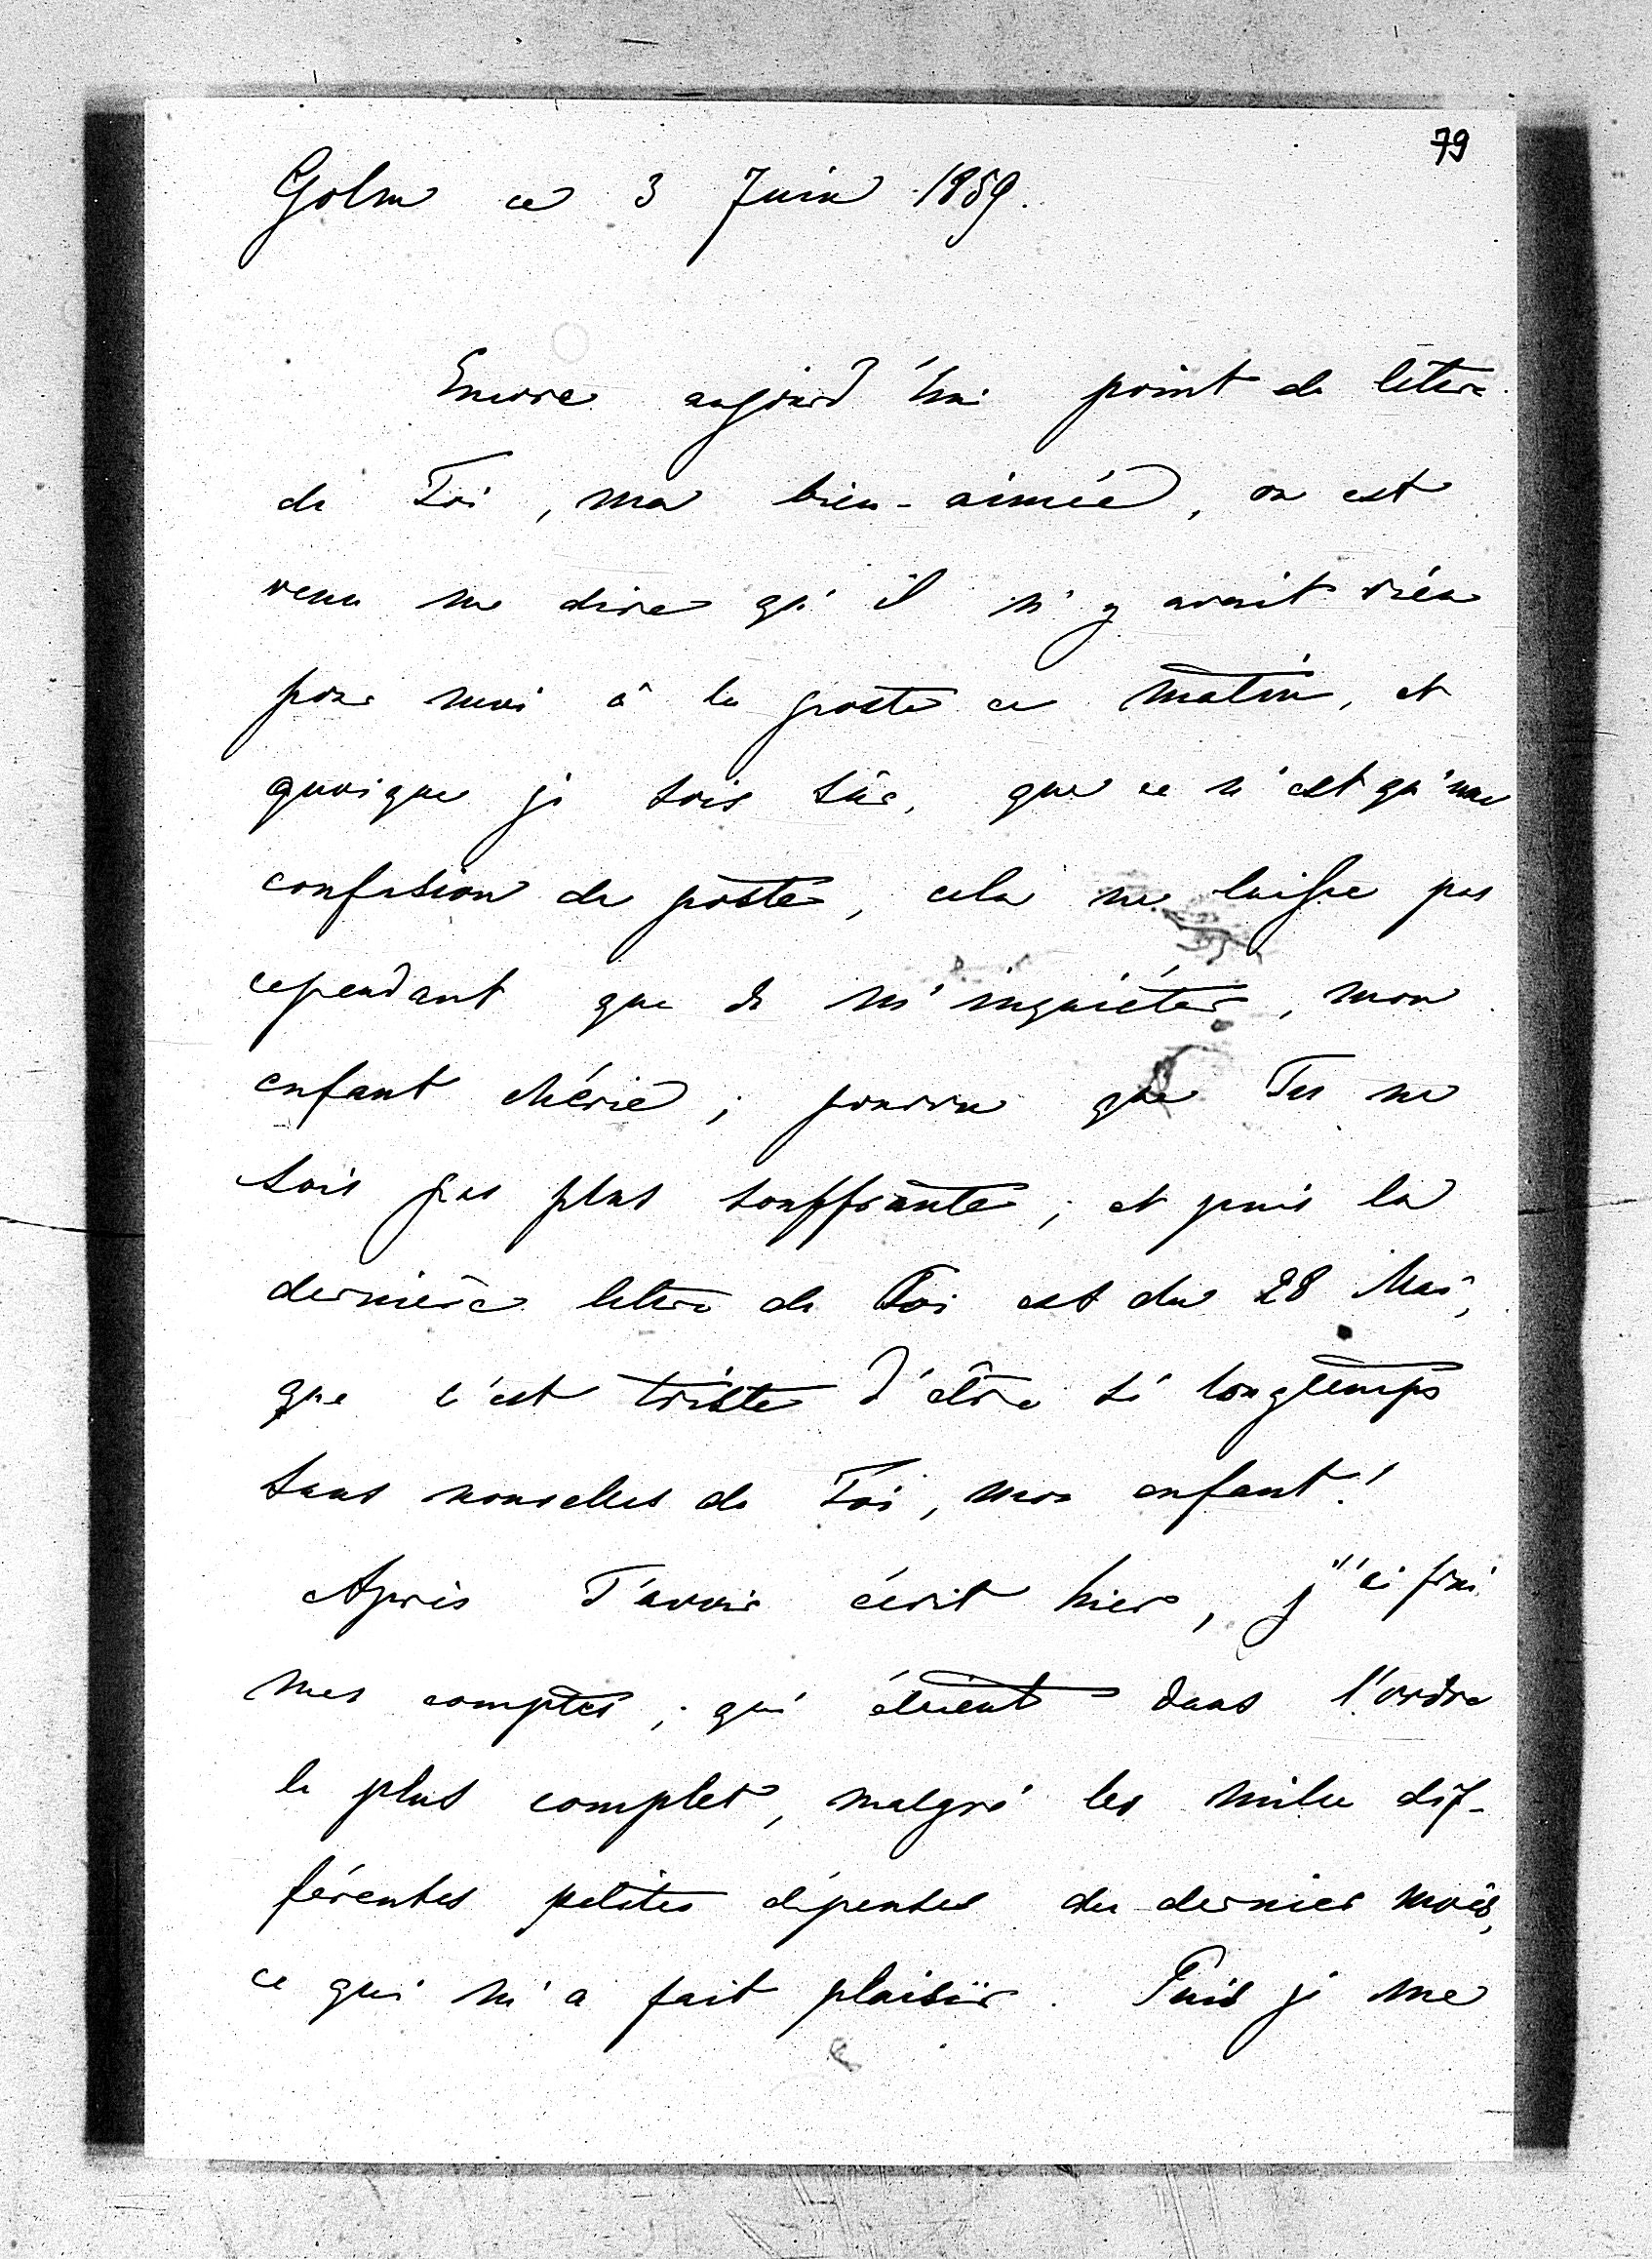 79
Golm ce 3 Juin 1859.
Encore aujourd'hui point de lettre
de Toi, ma bien-aimée, on est
venu me dire qu'il n'y avait rien
pour moi à la poste ce matin, et
quoique je sois sûr, que ce n'est qu'une
confusion de poste, cela ne laisse pas
cependant que de m'inquiéter, mon
enfant chérie; pourvu que Tu ne
sois pas plus souffrante; et puis la
dernière lettre de Toi est du 28 Mai,
que c'est triste d'être si longtemps
sans nouvelles de Toi, mon enfant!
Après T'avoir écrit hier, j'ai fini
mes comptes, qui étaient dans l'ordre
le plus complet, malgré les mille dif-
férentes petites dépenses du dernier mois,
ce qui m'a fait plaisir. Puis je me